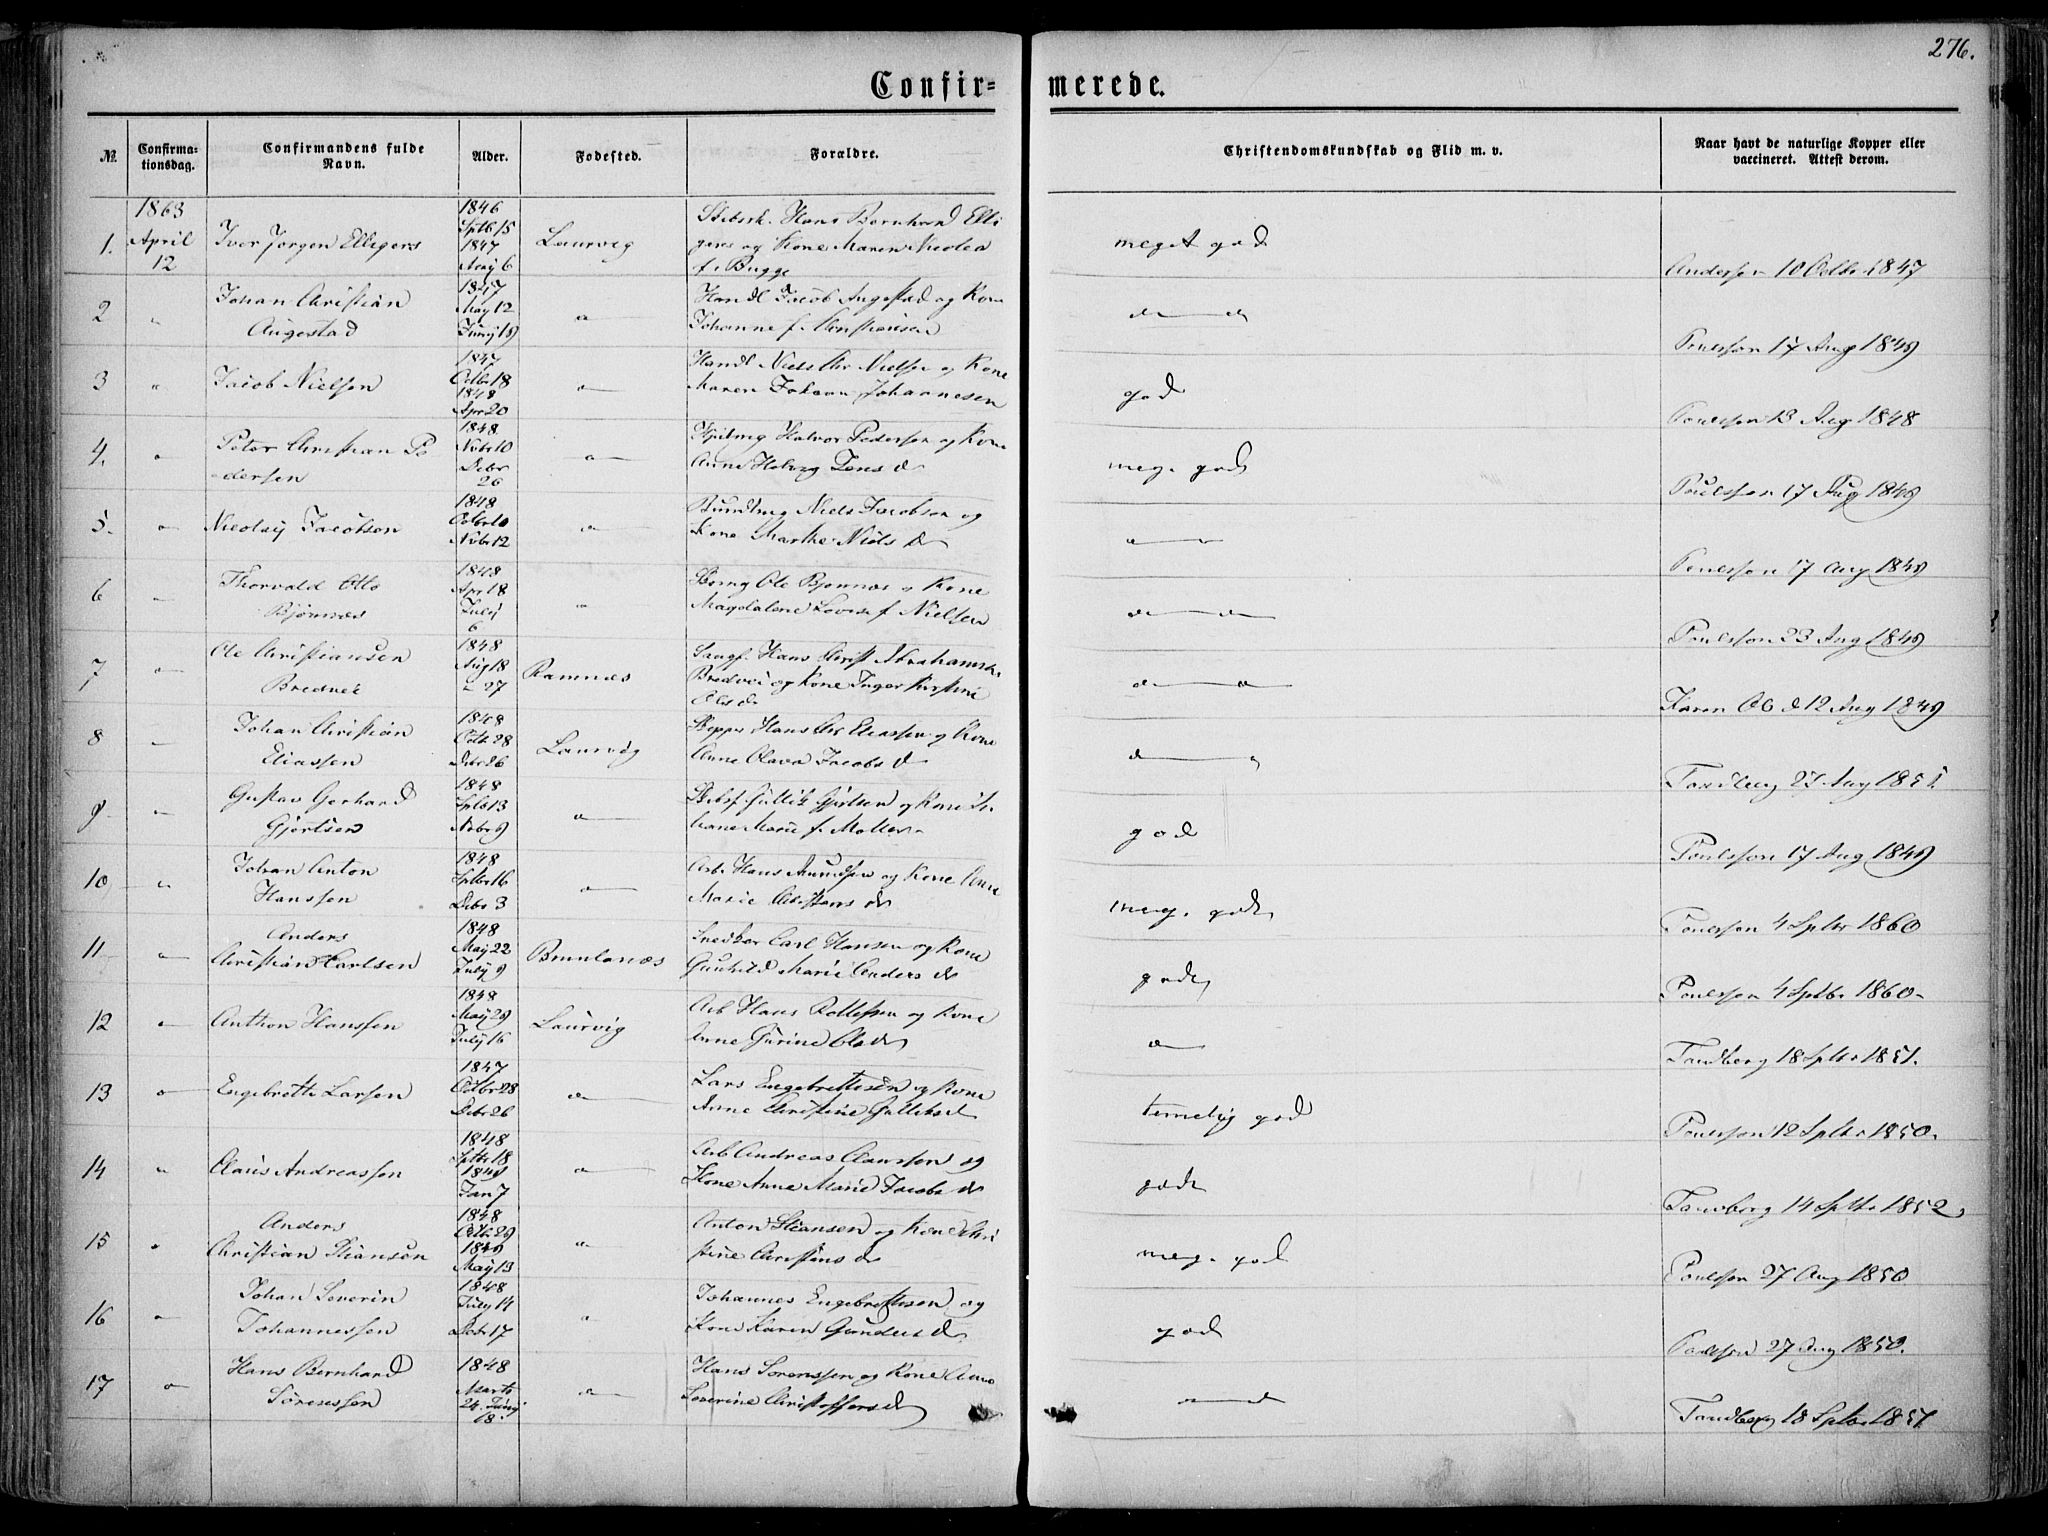 276.
Confirmerede.
№ Confirmationsdag. Confirmandens fulde Navn. Alder. Fodested. Forældre. Christendomskundskab og Flid m. v. Naar havt de naturlige Kopper eller vaccineret. Attest derom.
1863
1. April 12 Iver Jørgen Elligers 1846 Sptb 15 1847 May 6 Laurvig Hans Bernhard Elligers og Kone Maren Nicolea f. Bugge meget god Anderson 10 Octbr 1847
2 " Johan Christian Augestad 1847 May 12 Juny 19 " Handl Jacob Augestad og Kone Johanne f. Christiansen " Poulsson 17 Aug 1849
3 " Jacob Nielsen 1847 Octbr 18 1848 Apr 20 " Handl Niels Chr Nielsen og Kone Maren Johannesen god Poulsson 13 Aug 1848
4. " Peter Christian Pedersen 1848 Nvbr 10 Debr 26 " Halvor Pedersen og Kone Anne Helvig Jens d meg. god Poulsson 17 Aug 1849
5. " Nicolay Jacobsen 1848 Octbr 10 Nvbr 12 " Niels Jacobsen og Kone Marthe Niels d " Poulsson 17 Aug 1849
6 " Thorvald Otto Bjønnæs 1848 Apr 18 July 6 " Ole Bjønnæs og Kone Magdalene Lovise f. Nielsen " Poulsson 23 Aug 1849
7 " Ole Christiansen Bredvei 1848 Aug 18 " 27 Ramnæs Hans Christ Abrahamsen Bredvei og Kone Inger Kirstine Ols d " Karen Ols d 12 Aug 1849
8 " Johan Christian Eliassen 1848 Octb 28 Debr 26 Laurvig Hans Chr Eliassen og Kone Anne Olava Jacobs d " Tandberg 27 Aug 1851
9 " Gustav Gerhard Gjertsen 1848 Sptb 13 Nvbr 9 " Gullik Gjertsen og Kone Marie f. Møller god Poulsson 17 Aug 1849
10 " Johan Anton Hanssen 1848 Sptbr 16 Debr 3 " Arb. Hans Amundsen og Kone Anne Marie Christens d meg. god Poulsson 4 Sptbr 1860
11 " Anders Christian Carlsen 1848 May 22 July 9 Brunlanæs Snedker Carl Hansen og Kone Gunhild Marie Anders d god Poulsson 4 Sptbr 1860
12 " Anthon Hanssen 1848 May 29 July 16 Laurvig Arb Hans Rollefsen og Kone Anne Gurine Ols d " Tandberg 18 Sptbr 1851.
13 " Engebrette Larsen 1847 Octbr 28 Debr 26 " Lars Engebrettesen og Kone Anne Christine Gulliks d temelig god Poulsson 12 Sptbr 1850.
14 " Claus Andreassen 1848 Sptbr 18 1849 Jan 7 " Arb Andreas Claussen og Kone Anne Marie Jacobs d god Tandberg 14 Sptbr 1852
15 " Anders Christian Stiansen 1848 Octb 29 1849 May 13 " Anton Stiansen og Kone Christine Christens d meg. god Poulsson 27 Aug 1850
16 " Johan Severin Johannessen 1848 July 14 Debr 17 " Johannes Engebrettesen og Kone Karen Gundes d god Poulsson 27 Aug 1850.
17 " Hans Bernhard Sörenssen 1848 Marts 24. Juny 18. " Hans Sorenssen og Kone Anne Severine Christoffers d " Tandberg 18 Sptbr 1851